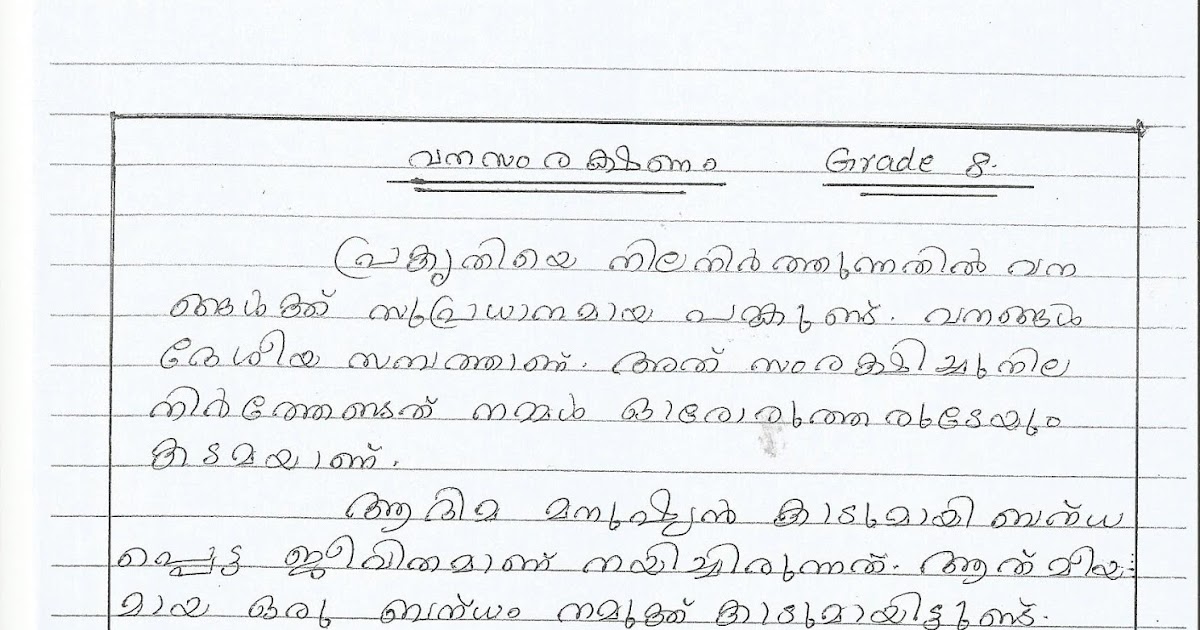 വനസംരക്ഷണം Grade 8.
പ്രകൃതിയെ നിലനിർത്തുന്നതിൽ വന
ങ്ങൾക്ക് സുപ്രധാനമായ പങ്കുണ്ട്. വനങ്ങൾ
ദേശീയ സമ്പത്താണ്. അത് സംരക്ഷിച്ചു നില
നിർത്തേണ്ടത് നമ്മൾ ഓരോരുത്തരുടേയും
കടമയാണ്.
ആദിമ മനുഷ്യൻ കാടുമായി ബന്ധ
പ്പെട്ട ജീവിതമാണ് നയിച്ചിരുന്നത്. ആത്മീയ
മായ ഒരു ബന്ധം നമുക്ക് കാടുമായിട്ടുണ്ട്.